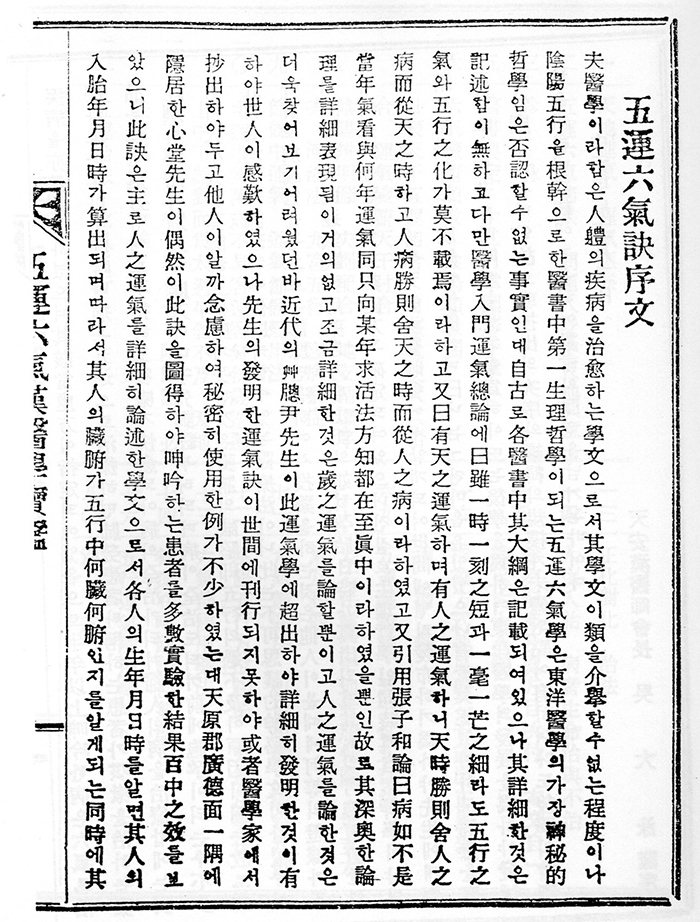 五運六氣訣序文
夫醫學이라함은人軆의疾病을治愈하는學文으로서其學文이類을介擧할수없는程度이나
陰陽五行을根幹으로한醫書中第一生理哲學이되는五運六氣學은東洋醫學의가장神秘的
哲學임은否認할수없는事實인대自古로各醫書中其大綱은記載되여있으나其詳細한것은
記述함이無하고다만醫學入門運氣總論에曰雖一時一刻之短과一毫一芒之細라도五行之
氣와五行之化가莫不載焉이라하고又曰有天之運氣하며有人之運氣하니天時勝則舍人之
病而從天之時하고人病勝則舍天之時而從人之病이라하였고又引用張子和論曰病如不是
當年氣看與何年運氣同只向某年求活法方知都在至眞中이라하였을뿐인故로其深奧한論
理를詳細表現됨이거의없고조금詳細한것은歲之運氣를論할뿐이고人之運氣를論한젓은
더욱찾어보기어려웠던바近代의艸牕尹先生이此運氣學에超出하야詳細히發明한것이有
하야世人이感歎하였으나先生의發明한運氣訣이世間에刊行되지못하야或者醫學家에서
抄出하야두고他人이알까念慮하여秘密히使用한例가不少하였는대天原郡廣德面一隅에
隱居한心堂先生이偶然이此訣을圖得하야呻吟하는患者를多數實驗한結果百中之效를보
았으니此訣은主로人之運氣를詳細히論述한學文으로서各人의生年月日時를알면其人의
入胎年月日時가算出되며따라서其人의臟腑가五行中何臟何腑인지를알게되는同時에其
五運六氣漢醫學寶鑑